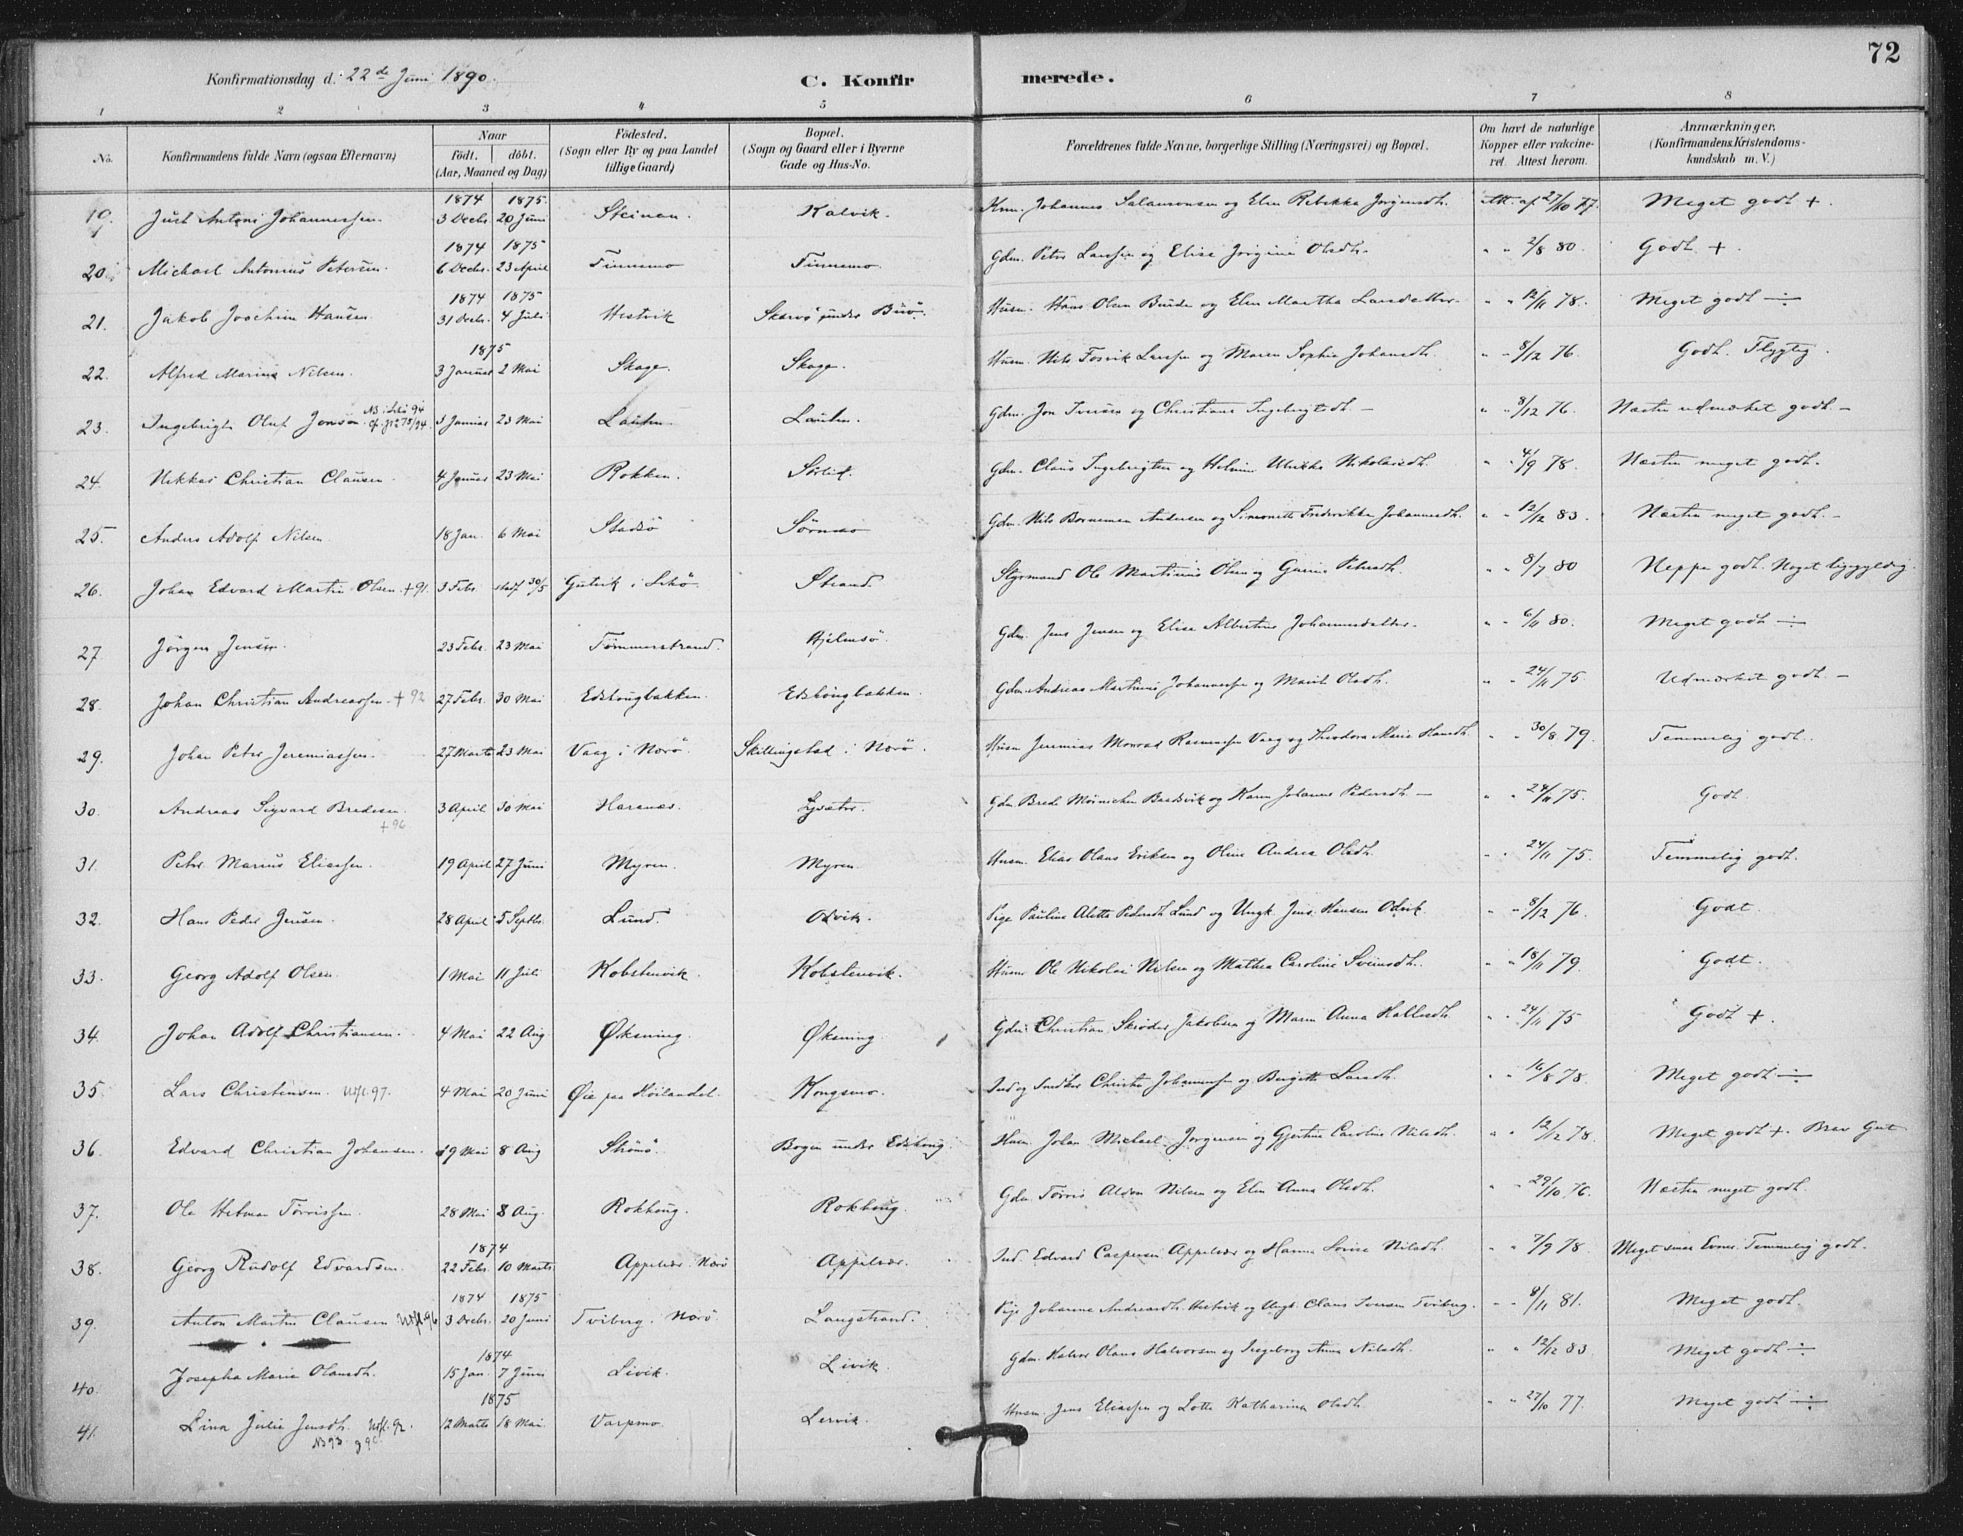 72
Konfirmationsdag d. 22de Juni 1890.
C. Konfirmerede.
1 2 3 4 5 6 7 8
No. Konfirmandens fulde Navn (ogsaa Efternavn) Naar født. døbt. (Aar, Maaned og Dag) Fødested. (Sogn eller By og paa Landet tillige Gaard) Bopæl. (Sogn og Gaard eller i Byerne Gade og Hus-No. Forældrenes fulde Navne, borgerlige Stilling (Næringsvei) og Bopæl. Om havt de naturlige Kopper eller vakcineret. Attest herom. Anmærkninger. (Konfirmandens Kristendomskundskab m. V.)
1874 1875
19. Just Antoni Johannessen. 3 Decbr. 20 Juni Steinen. Kalvik. Johannes Salamonsen og Elen Rebekka Jørgensdh. Att. af 27/10 77. Meget godt +.
1874 1875
20. Michael Antonius Petersen. 6 Decbr. 23 April Finnemo Finnemo. Gdm. Peter Larssen og Elise Jørgine Olsdh. " " 2/8 80. Godt +.
1874 1875
21. Jakob Joachim Hansen 31 Decbr. 4 Juli Hestvik Skarvø under Buø. Husm. Hans Olsen Burde og Elen Martha Larsdatter. " " 12/11 78. Meget godt ÷
1875
22. Alfred Marius Nilsen. 3 Januar 2 Mai Skage. Skage. Husm. Nils Larssen og Maren Sophie Johansdh. " " 8/12 76. Godt. Flygtig.
23. Ingebrigt Oluf Jonsen. 3 Januar 23 Mai Lauten. Lauten. Gdm. Jon Iversen og Christiane Ingebrigtsdh. " " 8/12 76. Næsten udmærket godt. -
24. Nikkas Christian Clausen. 4 Januar 23 Mai Rokken. Sørlid. Gdm. Claus Ingebrigtsen og Helmine Ulrikke Nikolaisdh. " " 4/9 78. Næsten meget godt.
25. Anders Adolf Nilsen. 18 Jan. 6 Mai Stadsø Sørnes Gdm. Nils Bornemann Andersen og Simonette Frederikke Johannesdh. " " 12/12 83. Næsten meget godt. -
26. Johan Edvard Martin Olsen. +91. 3 Febr. stadf. 30/5 Gutvik i Lekø Strand Styrmand Ole Martinius Olsen og Petersdh. " " 8/7 80 Neppe godt. Noget ligegyldig.
27. Jørgen Jensen. 23 Febr. 23 Mai Tømmerstrand. Hjelmsø. Gdm. Jens Jensen og Elise Albertine Johannesdatter. " " 6/11 80. Meget godt ÷
28. Johan Christian Andreassen. +92 27 Febr. 30 Mai Edshougbakken. Edshougbakken. Gdm. Andreas Martinius Johannessen og Marit Olsdh. " " 24/11 75 Udmærket godt. -
29. Johan Peter Jeremiassen. 27 Marts 23 Mai Vaag i Nærø. Skillingstad i Nærø. Husm. Jeremias Monrad Rasmussen Vaag og Theodora Marie Hansdh. " " 30/8 79. Temmelig godt.
30. Andreas Sigvard Bredesen. +96 3 April 30 Mai Haranes. Gdm. Brede Mørnichen Baadsvik og Karen Johanne Pedersdh. " " 24/11 75. Godt.
31. Peter Marius Eliassen. 19 April 27 Juni Myren. Myren. Husm. Elias Olaus Eriksen og Oline Andrea Olsdh. " " 24/11 75. Temmelig godt.
32. Hans Peder Jensen. 28 April 5 Septbr. Lund. Odvik. Pige Pauline Alette Pedersdh. Lund og Ungk. Jens Hansen Odvik " " 8/12 76. Godt.
33. Georg Adolf Olsen. 1 Mai 11 Juli Kobstenvik. Kobstenvik. Husm. Ole Nikolai Nilsen og Mathea Caroline Svensdh. " " 18/11 79. Godt.
34. Johan Adolf Christiansen. 4 Mai 22 Aug. Øksning. Øksning. Gdm. Christian Skrøder Jakobsen og Maren Anna Hallesdh. " " 24/11 75 Godt +.
35. Lars Christensen. Udfl. 97. 4 Mai 20 Juni Øie paa Høilandet. Kongsmo. Ind. og Snedker Christen Johannessen og Bergitte Larsdh. " " 16/8 78. Meget godt ÷
36. Edvard Christian Johansen. 19 Mai 8 Aug. Strømø. Bogen under Edshoug. Husm. Johan Michael Jørgensen og Gjertine Caroline Nilsdh. " " 12/12 78. Meget godt +. Brav Gut
37. Ole Hetman Tørrissen. 28 Mai 8 Aug. Rokhoug. Rokhoug. Gdm. Tørris Aldon Nilsen og Elen Anna Olsdh. " " 29/10 76. Næsten meget godt.
1874
38. Georg Rudolf Edvardsen. 22 Febr. 10 Marts Appelvær. Nærø Appelvær. Ind. Edvard Caspersen Appelvær og Hanna Lovise Nilsdh. " " 7/9 78. Meget smaa Evner. Temmelig godt.
1874 1875
39. Anton Martin Clausen Udfl. 96 3 Decbr. 20 Juni Tviberg. Nærø Langstrand. Pige Johanna Andreasdh. Hestvik og Ungk. Claus Iversen Tviberg. " " 8/11 81. Meget godt.
1874
40. Josepha Marie Olausdh. 15 Jan. 7 Juni Livik. Livik. Gdm. Olaus Halvorsen og Ingeborg Anna Nilsdh. " " 12/12 83. Meget godt ÷
1875
41. Lina Julie Jensdh. Udfl. 92. 12 Marts 18 Mai. Varpmo. Lervik. Husm. Jens Eliassen og Lotte Katharina Olsdh. " " 27/10 77. Meget godt ÷